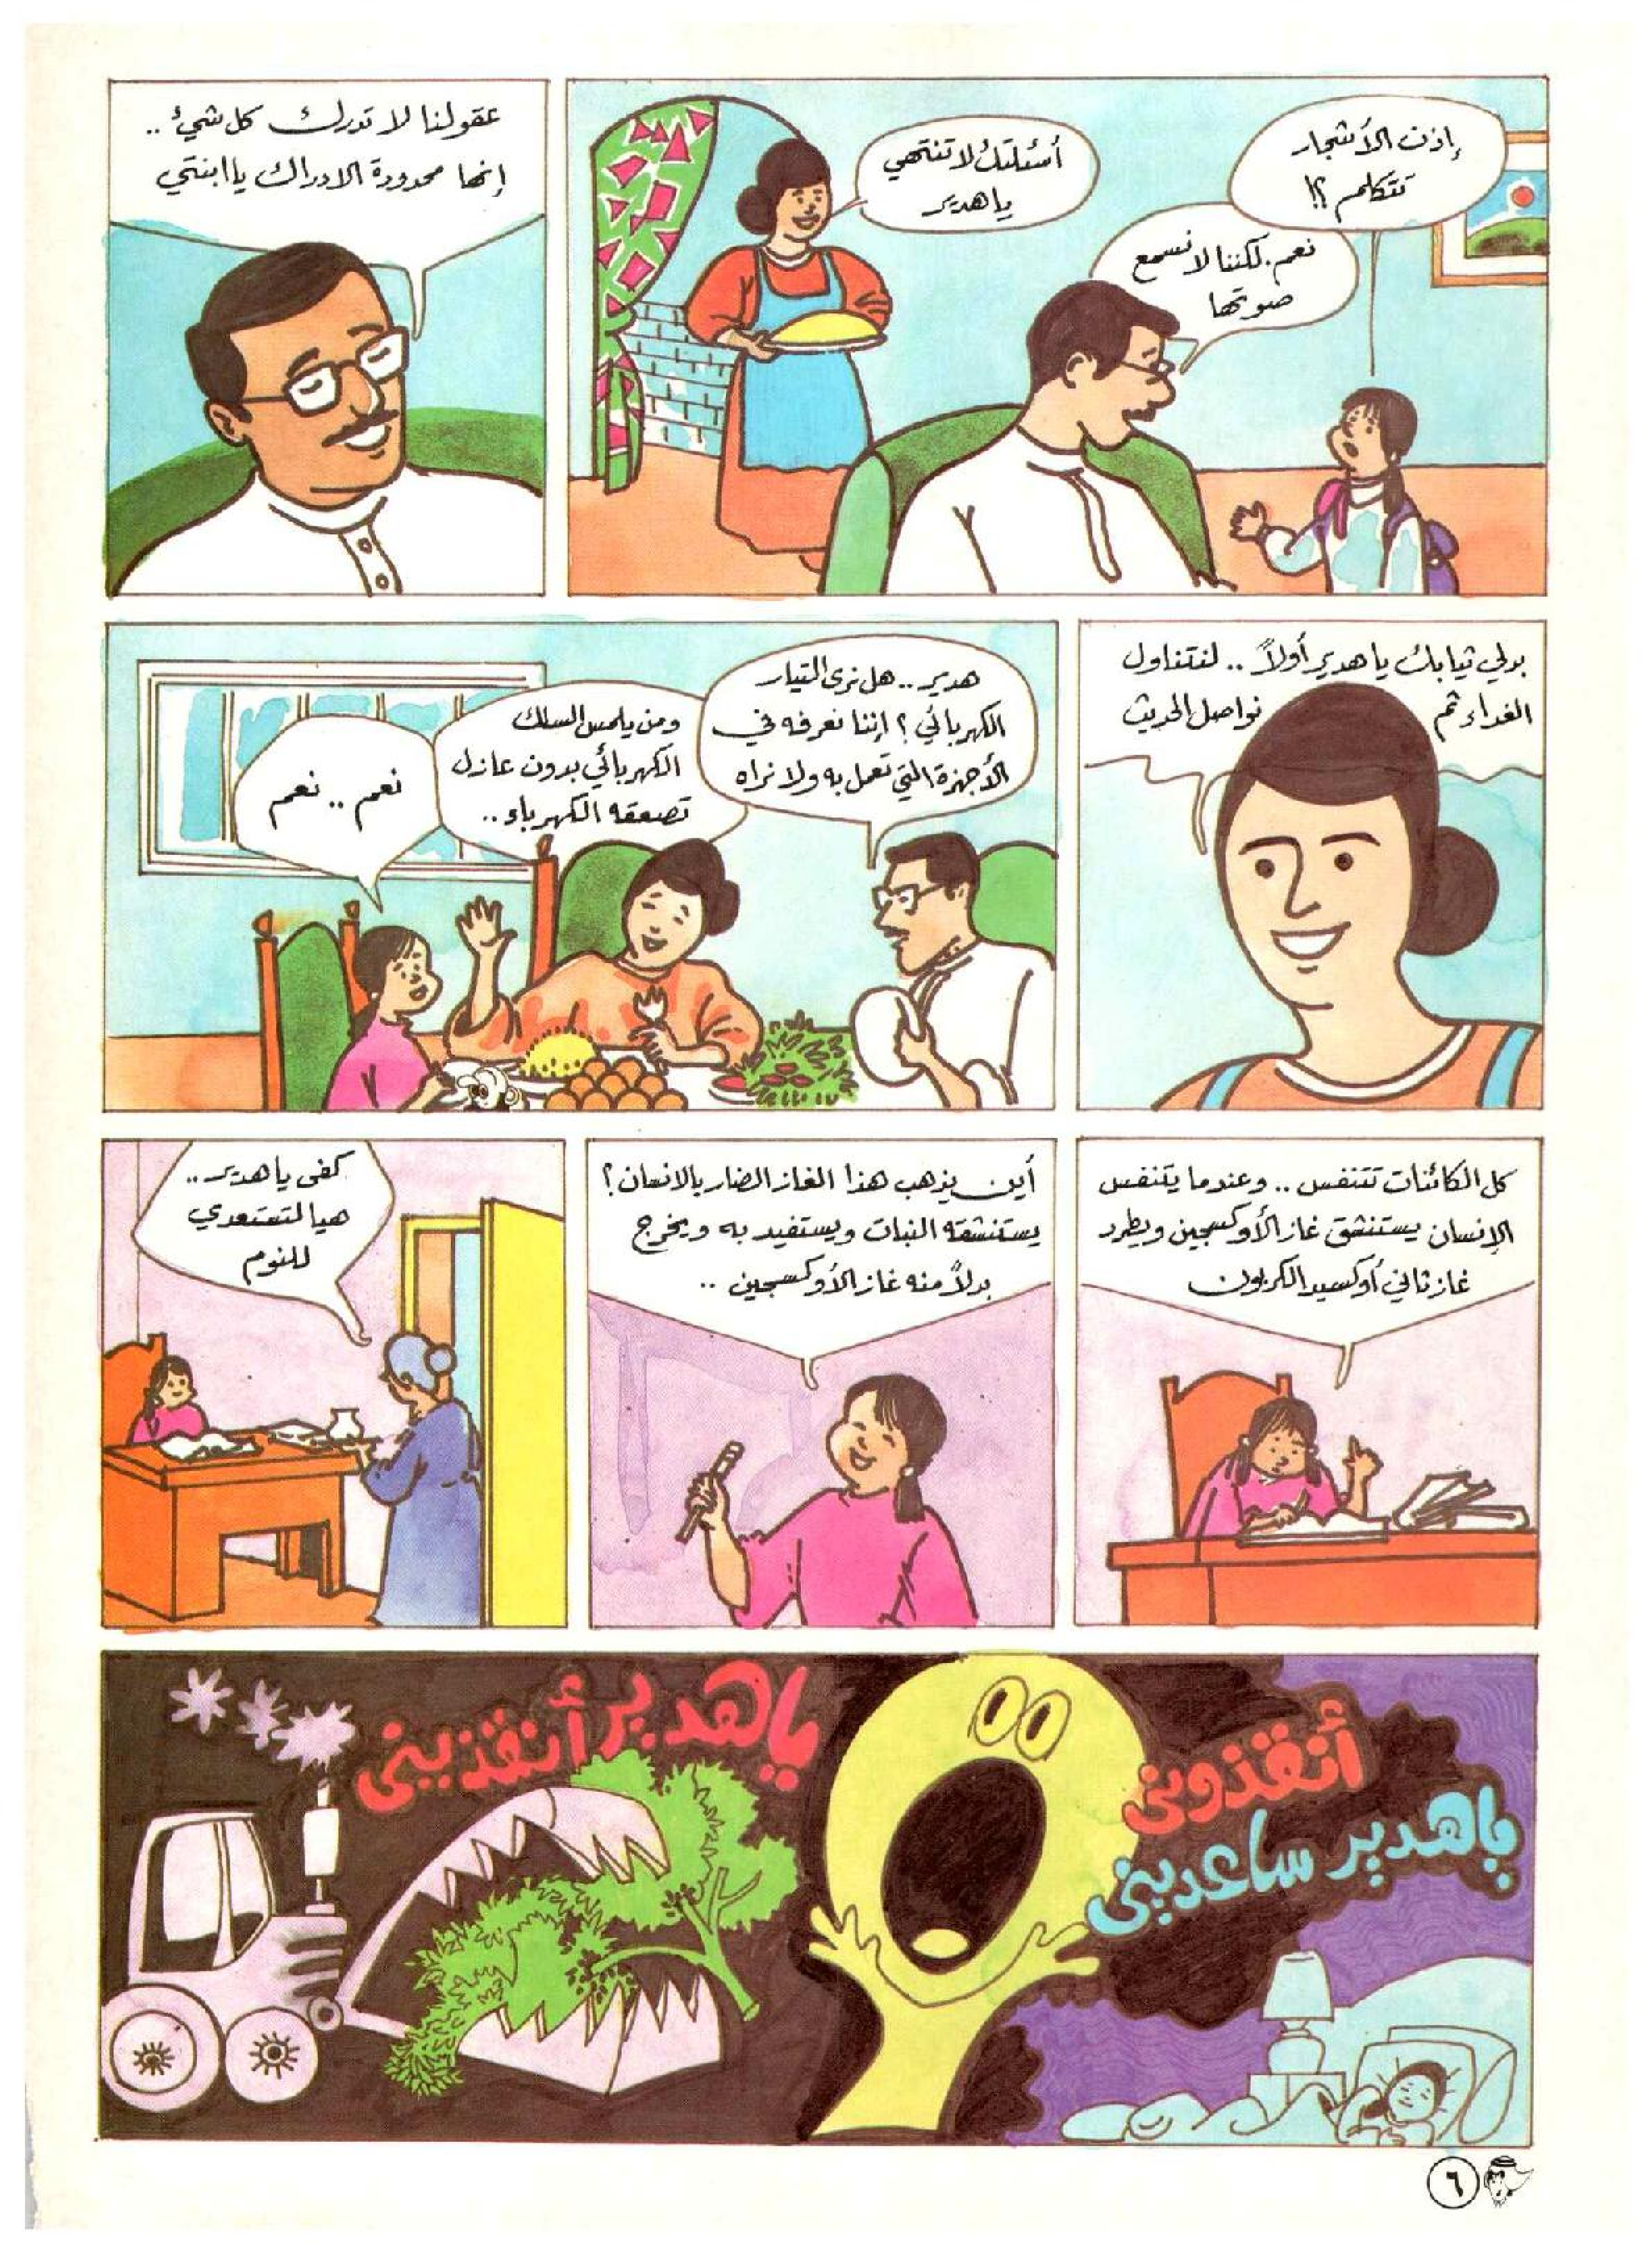 إذن الأشجار
تتكلم ؟!
نعم. لكننا لا نسمع
صوتها
أسئلتك لا تنتهي
يا هدير
عقولنا لا تدرك كل شيء ..
إنها محدودة الادراك يا ابنتي
بدلي ثيابك يا هدير أولاً .. لنتناول
الغداء ثم نواصل الحديث
هدير .. هل نرى التيار
الكهربائي ؟ إننا نعرفه في
الأجهزة التي تعمل به ولا نراه
ومن يلمس السلك
الكهربائي بدون عازل
تصعقه الكهرباء ..
نعم .. نعم
كل الكائنات تتنفس .. وعندما يتنفس
الإنسان يستنشق غاز الأوكسجين ويطرد
غاز ثاني أوكسيد الكربون
أين يذهب هذا الغاز الضار بالانسان ؟
يستنشقه النبات ويستفيد به ويخرج
بدلاً منه غاز الأوكسجين ..
كفى يا هدير ..
هيا لتستعدي
للنوم
أنقذوني
يا هدير ساعديني
يا هدير أنقذيني
٦